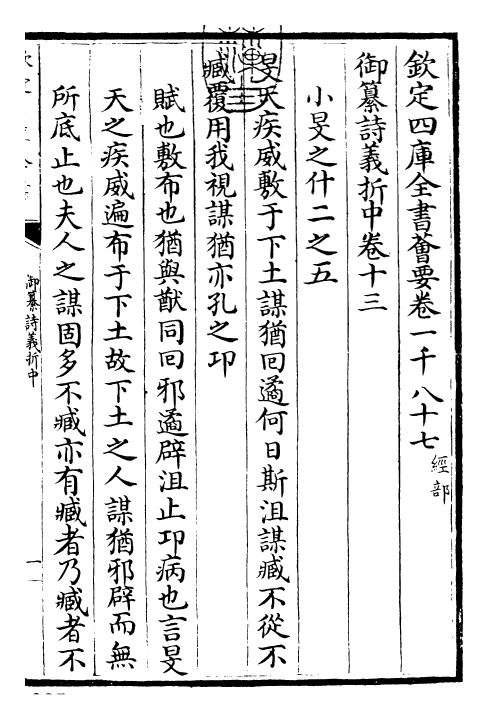 欽定四庫全書薈要卷一千八十七 經部
御纂詩義折中卷十三
小旻之什二之五
旻天疾威敷于下土謀猶回遹何日斯沮謀臧不從不
臧覆用我視謀猶亦孔之邛
賦也敷布也猶與猷同回邪遹辟沮止邛病也言旻
天之疾威遍布于下土故下土之人謀猶邪辟而無
所底止也夫人之謀固多不臧亦有臧者乃臧者不
御纂詩義折中